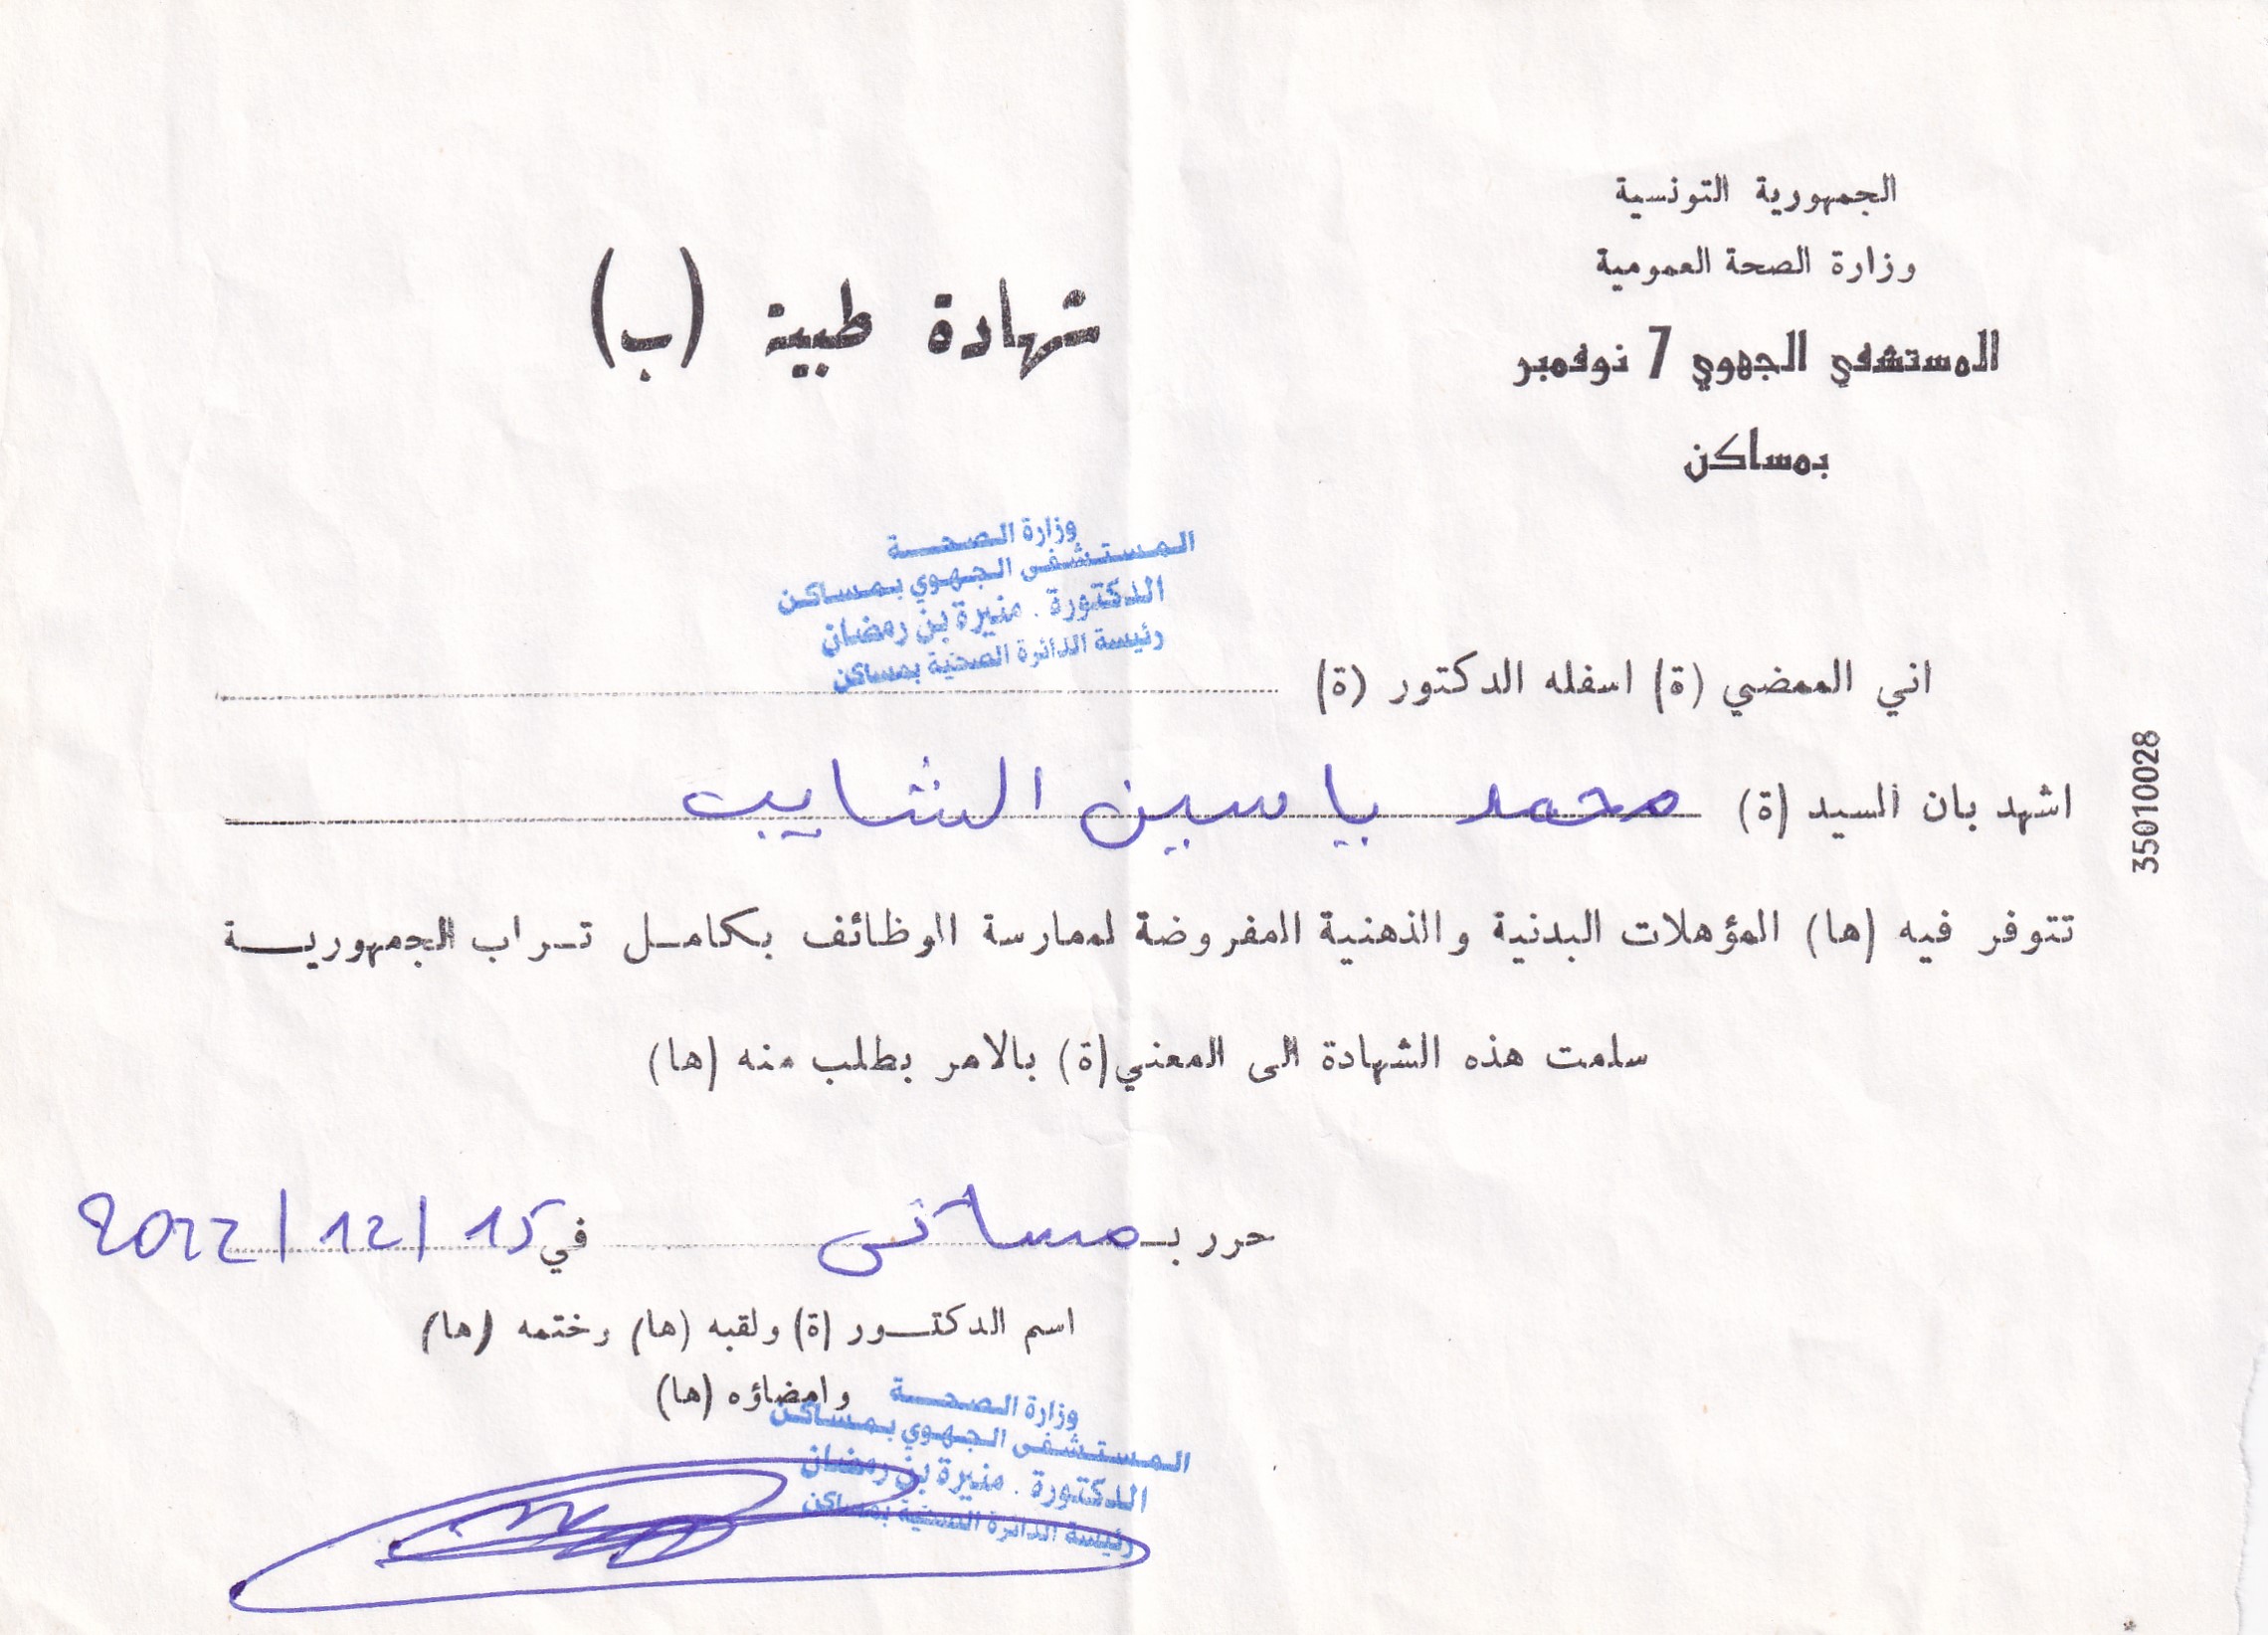 الجمهورية التونسية
وزارة الصحة العمومية
المستشفي الجهوي 7 نوفمبر
بمساكن
شهادة طبية (ب)
وزارة الصحة
المستشفى الجهوي بمساكن
الدكتورة . منيرة بن رمضان
رئيسة الدائرة الصحية بمساكن
اني الممضي (ة) اسفله الدكتور (ة)
اشهد بان السيد (ة) محمد ياسين الشايب
35010028
تتوفر فيه (ها) المؤهلات البدنية والذهنية المفروضة لممارسة الوظائف بكامل تراب الجمهورية
سلمت هذه الشهادة الى المعني(ة) بالامر بطلب منه (ها)
حرر بـ مساكن في 15/12/2022
اسم الدكتور (ة) ولقبه (ها) وختمه (ها)
وامضاؤه (ها)
وزارة الصحة
المستشفى الجهوي بمساكن
الدكتورة . منيرة بن رمضان
رئيسة الدائرة الصحية بمساكن